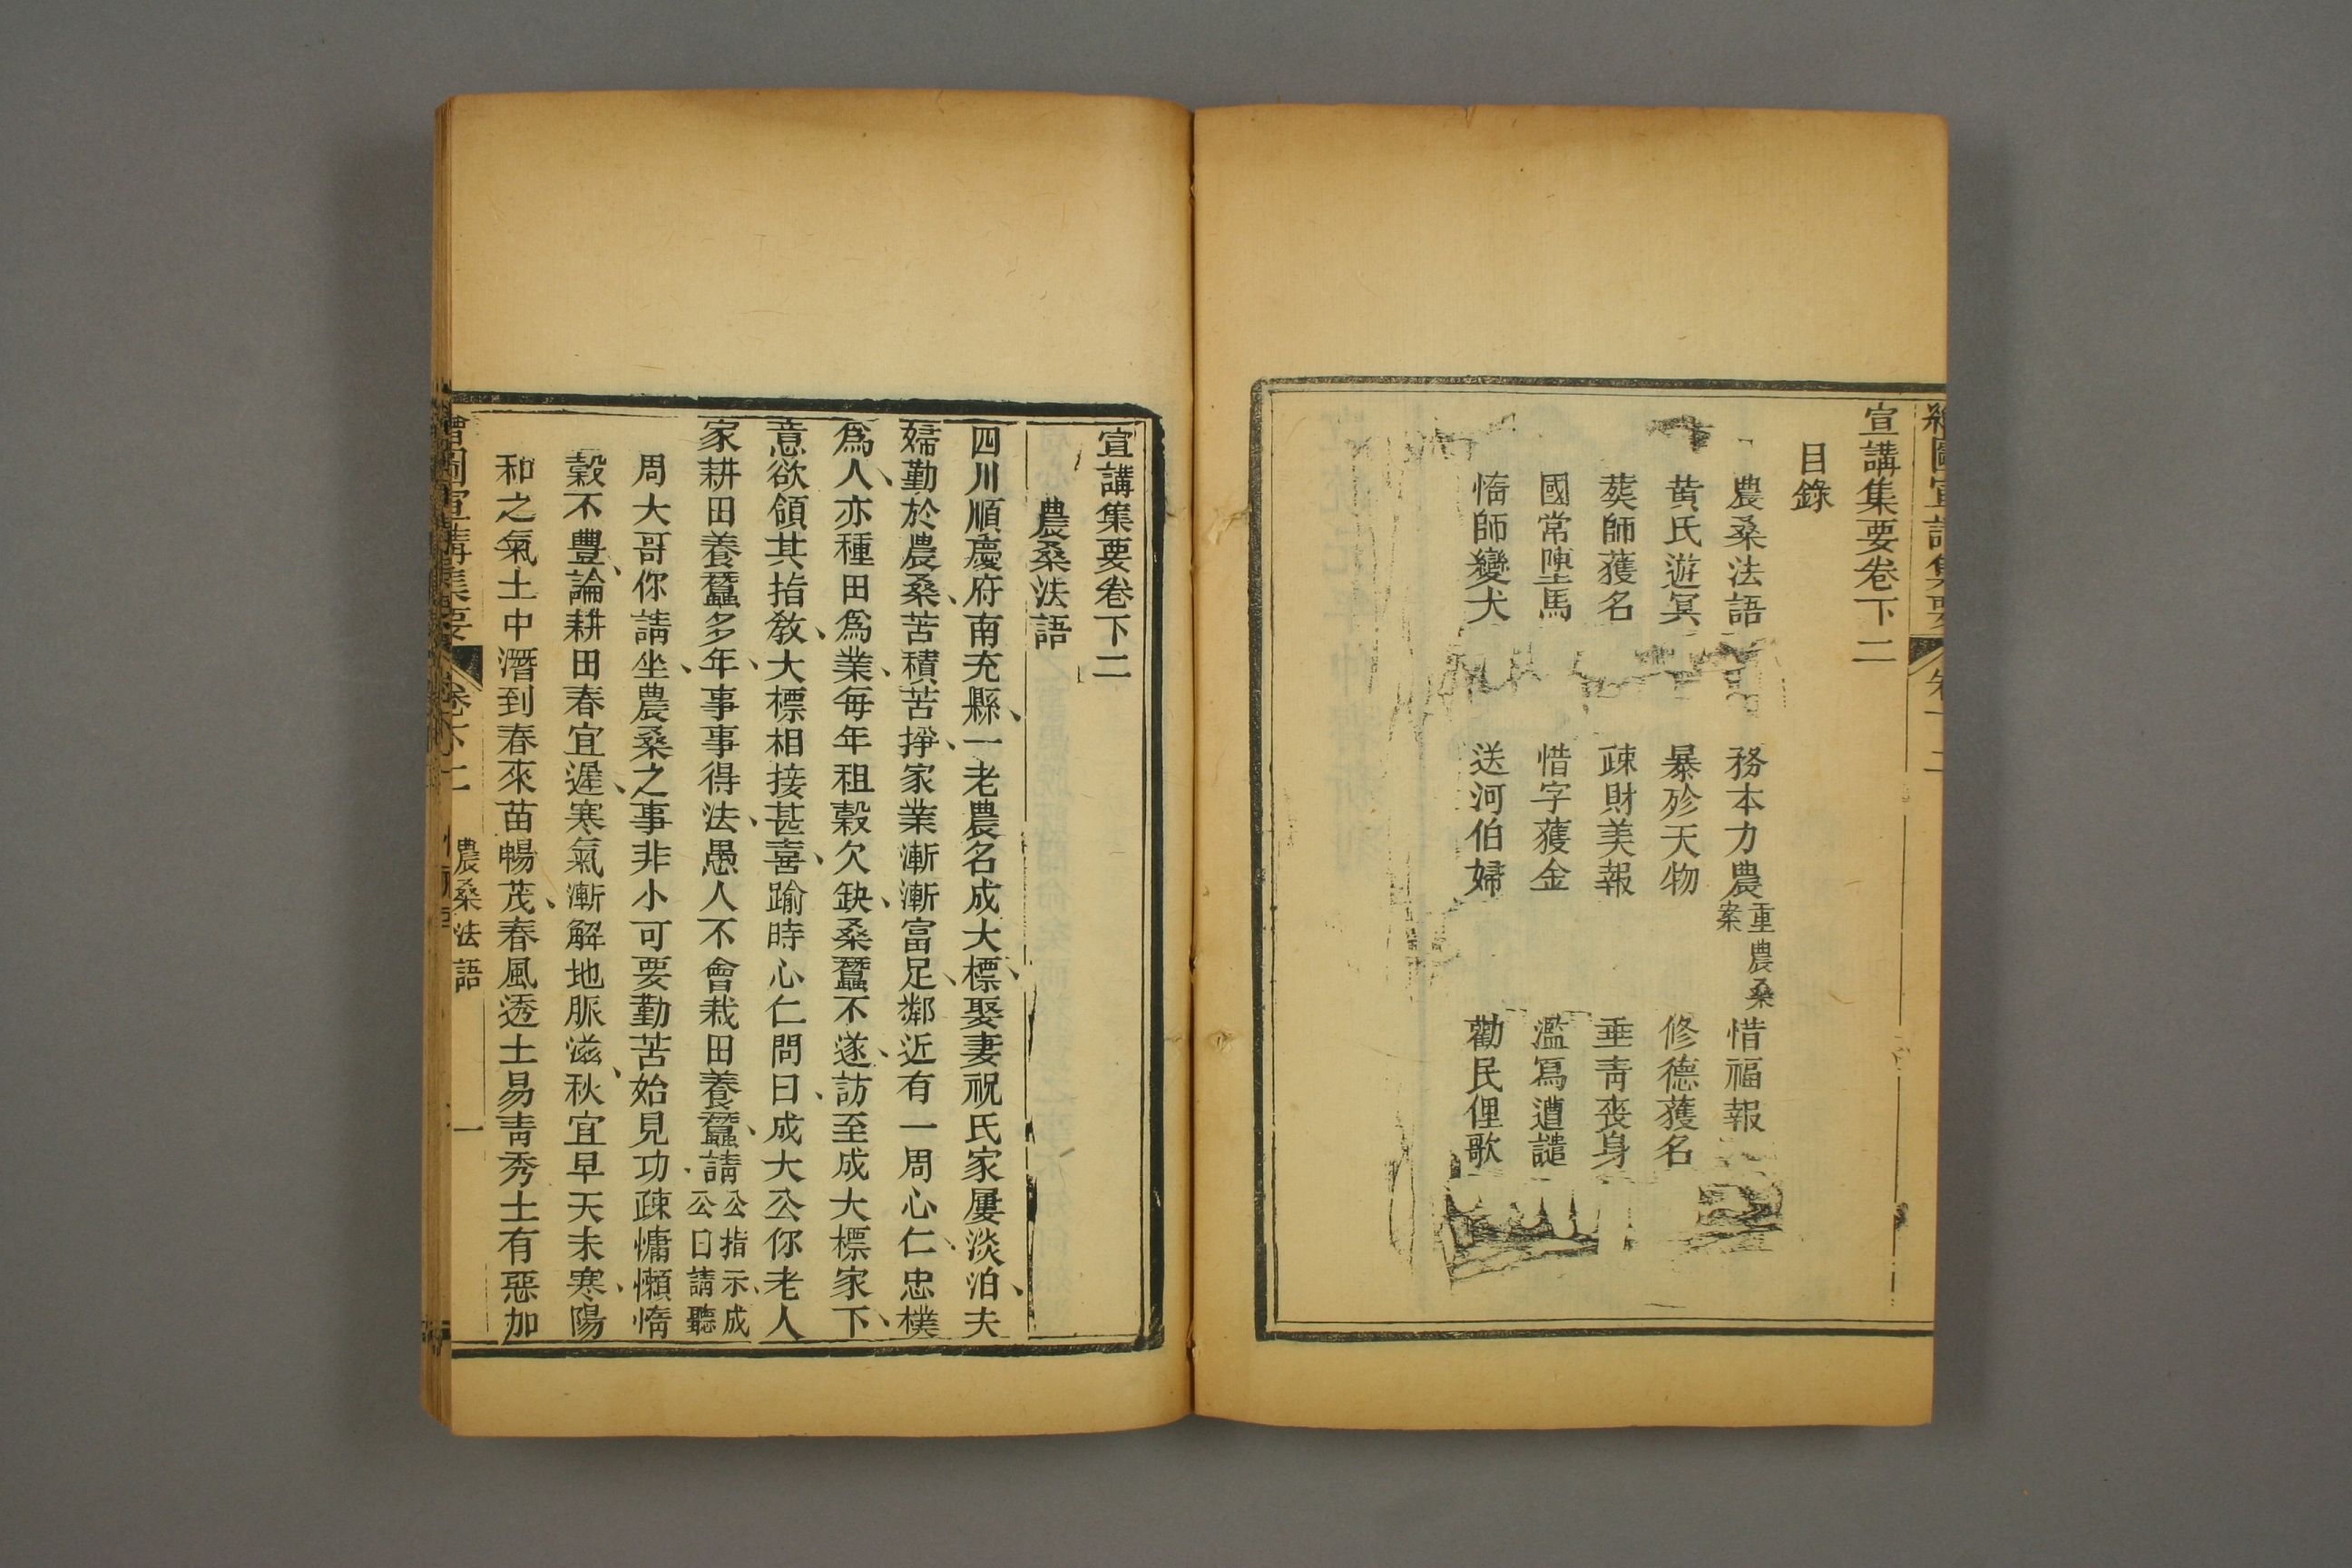 宣講集要卷下二
目錄
農桑法語　務本力農重農桑案　惜福報
黄氏遊冥　暴殄天物　修德獲名
葬師獲名　疎財美報　垂青喪身
國常墮馬　惜字獲金　濫寫遭譴
悔師變犬　送河伯婦　勸民俚歌
宣講集要卷下二
農桑法語
四川順慶府南充縣、一老農名成大標、娶妻祝氏家屢淡泊、夫
婦勤於農桑、苦積苦掙、家業漸漸富足、鄰近有一周心仁、忠樸
爲人、亦種田爲業、每年租穀欠缺、桑蠶不遂、訪至成大標家下、
意欲領其指教、大標相接甚喜、踰時心仁問曰、成大公你老人
家耕田養蠶多年、事事得法、愚人不會栽田養蠶、請公指示、成公曰請聽
周大哥你請坐、農桑之事非小可要勤苦始見功疎慵懶惰
穀不豐、論耕田春宜遲、寒氣漸解地脈滋、秋宜早天未寒、陽
和之氣土中潛到春來苗暢茂、春風透土易靑秀土有惡加
繪圖宣講集要　卷下二　農桑法語　一